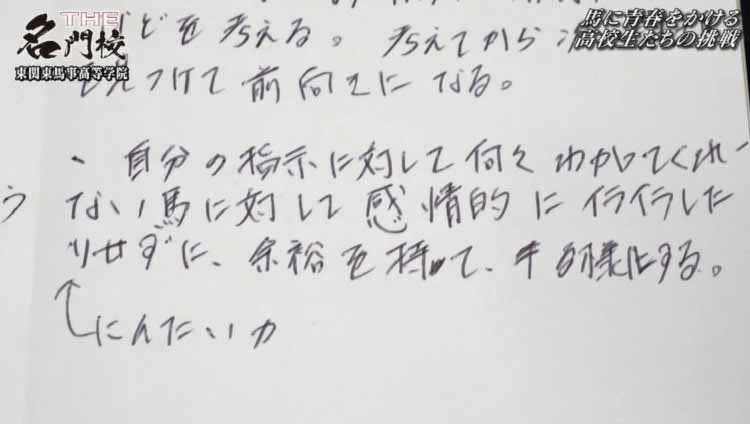 THE
名門校
東関東馬事高等学院
馬に青春をかける
高校生たちの挑戦
どを考える。考えてから
つけて前向きになる。
・自分の指示に対して何々わかってくれ
う
ない馬に対して感情的にイライラした
りせずに、余裕を持って、する。
にんたい力